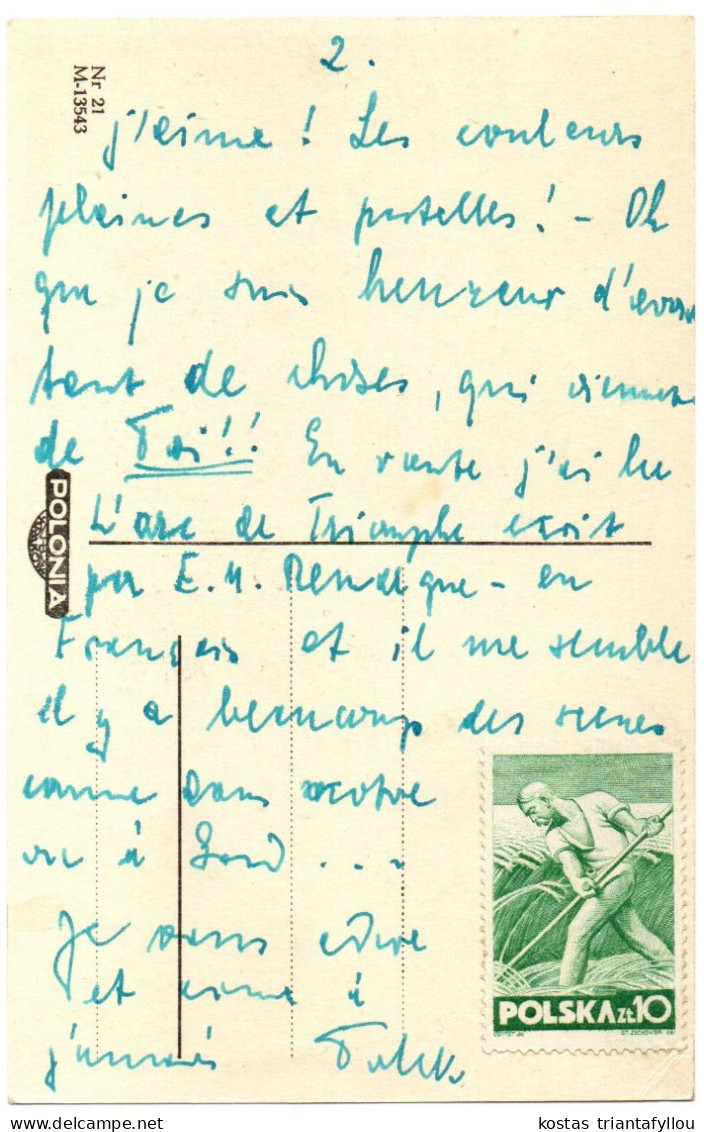 Nr 21
M-13543
2.
j'aime! Les couleurs
pleines et pastelles! - Oh
que je suis heureux d'avoir
tant de choses, qui viennent
de Toi!! En route j'ai lu
L'arc de Triomphe ecrit
POLONIA
par E. M. Remarque - en
Français et il me semble
il y a beaucoup des scenes
comme dans
à
Je vous adore
et aime à
jamais
POLSKA ZŁ 10
kostas triantafyllou